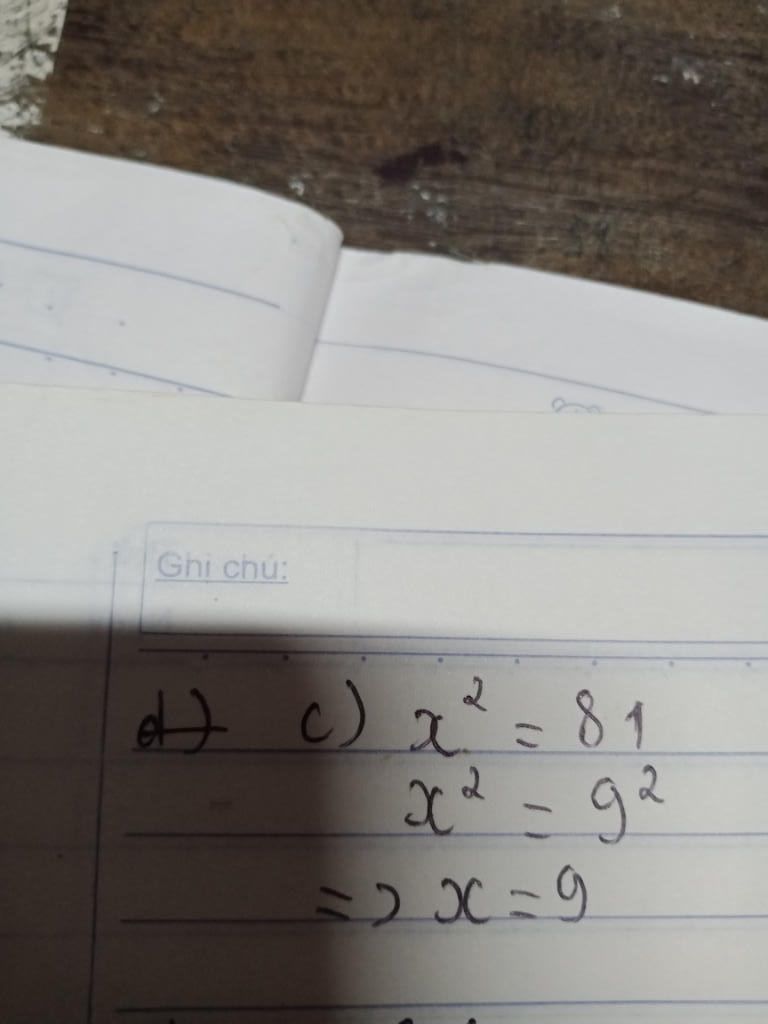 Ghi chú:
d) c) x² = 81
x² = 9²
=> x = 9